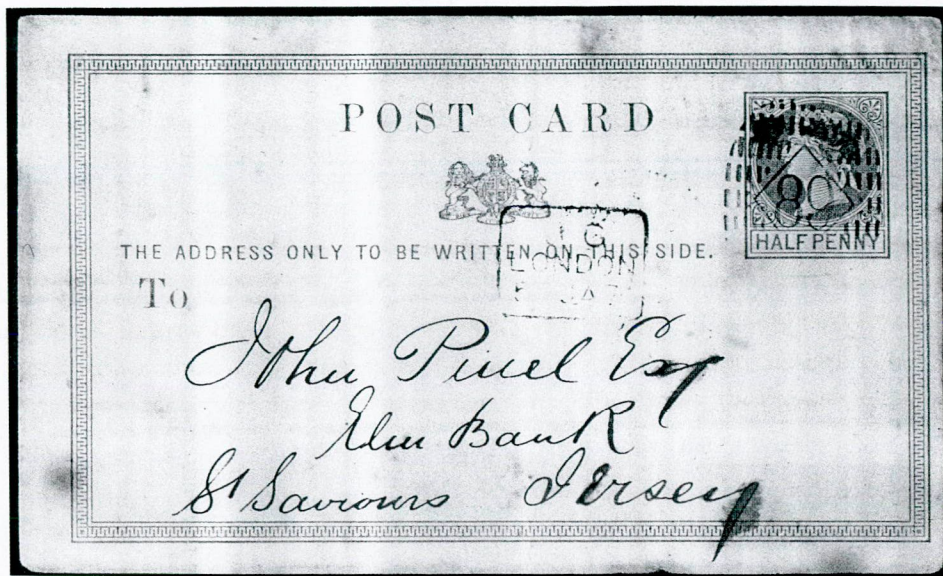 POST CARD
HALFPENNY
THE ADDRESS ONLY TO BE WRITTEN ON THIS SIDE.
LONDON
To
John Pinel Esq
Elm Bank
St Saviours Jersey